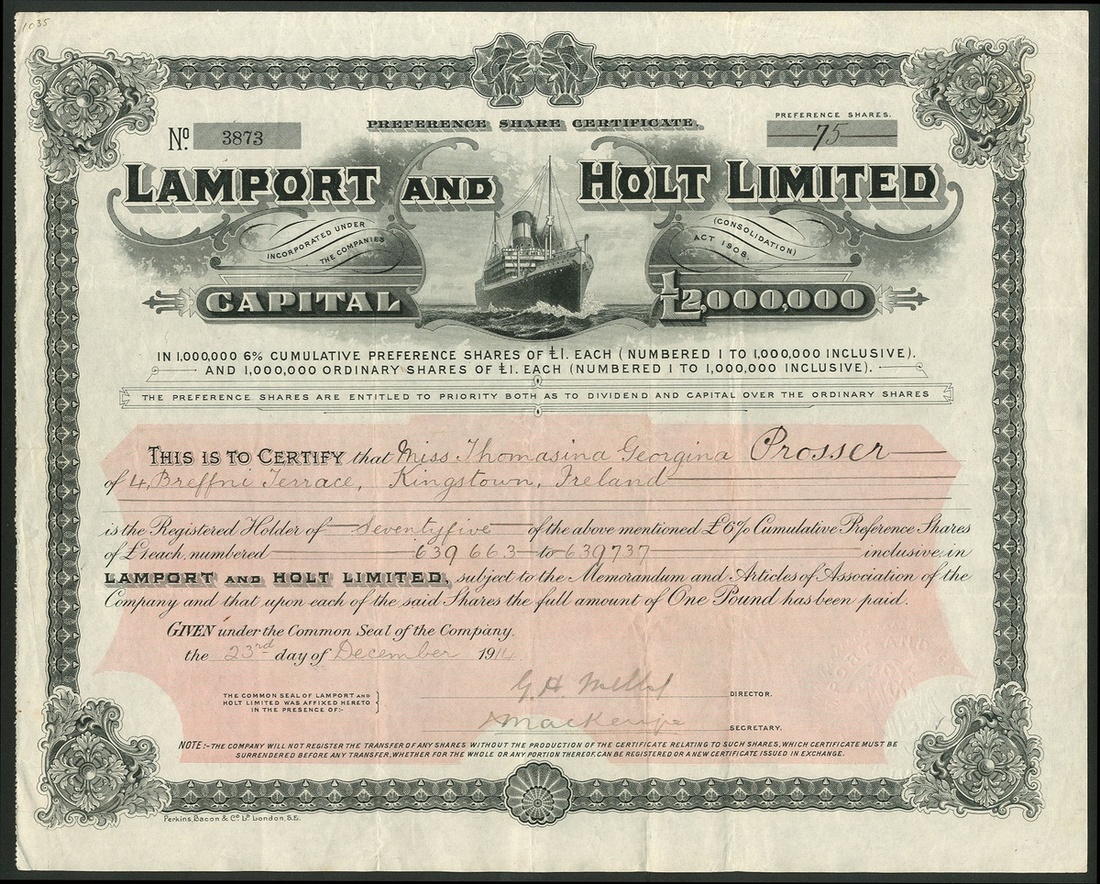 1035
PREFERENCE SHARE CERTIFICATE.
PREFERENCE SHARES.
No. 3873
75
LAMPORT AND HOLT LIMITED
INCORPORATED UNDER
THE COMPANIES
(CONSOLIDATION)
ACT 1908.
CAPITAL £2,000,000
IN 1,000,000 6% CUMULATIVE PREFERENCE SHARES OF £1. EACH (NUMBERED 1 TO 1,000,000 INCLUSIVE).
AND 1,000,000 ORDINARY SHARES OF £1. EACH (NUMBERED 1 TO 1,000,000 INCLUSIVE).
THE PREFERENCE SHARES ARE ENTITLED TO PRIORITY BOTH AS TO DIVIDEND AND CAPITAL OVER THE ORDINARY SHARES
THIS IS TO CERTIFY that Miss Thomasina Georgina Prosser
of 4, Breffni Terrace, Kingstown, Ireland
is the Registered Holder of Seventyfive of the above mentioned £6% Cumulative Preference Shares
of £1 each, numbered 639663 to 639737 inclusive, in
LAMPORT AND HOLT LIMITED, subject to the Memorandum and Articles of Association of the
Company and that upon each of the said Shares the full amount of One Pound has been paid.
GIVEN under the Common Seal of the Company.
the 23rd day of December 1914
THE COMMON SEAL OF LAMPORT AND
HOLT LIMITED WAS AFFIXED HERETO
IN THE PRESENCE OF:-
DIRECTOR.
Mackenzie
SECRETARY.
NOTE:-THE COMPANY WILL NOT REGISTER THE TRANSFER OF ANY SHARES WITHOUT THE PRODUCTION OF THE CERTIFICATE RELATING TO SUCH SHARES, WHICH CERTIFICATE MUST BE
SURRENDERED BEFORE ANY TRANSFER, WHETHER FOR THE WHOLE OR ANY PORTION THEREOF, CAN BE REGISTERED OR A NEW CERTIFICATE ISSUED IN EXCHANGE.
Perkins, Bacon & Co. Ld. London, S.E.